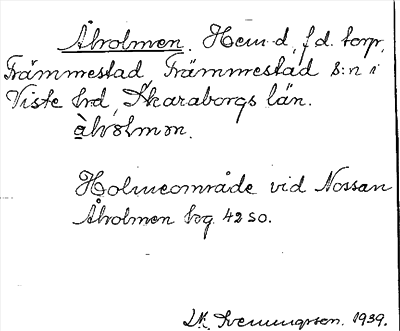 Åholmen. Hem-d, f.d. torp,
Främmestad, Främmestad s:n i
Viste hrd, Skaraborgs län.
àhólmən.
Holmeområde vid Nossan
Åholmen hog. 42 SO.
1939.